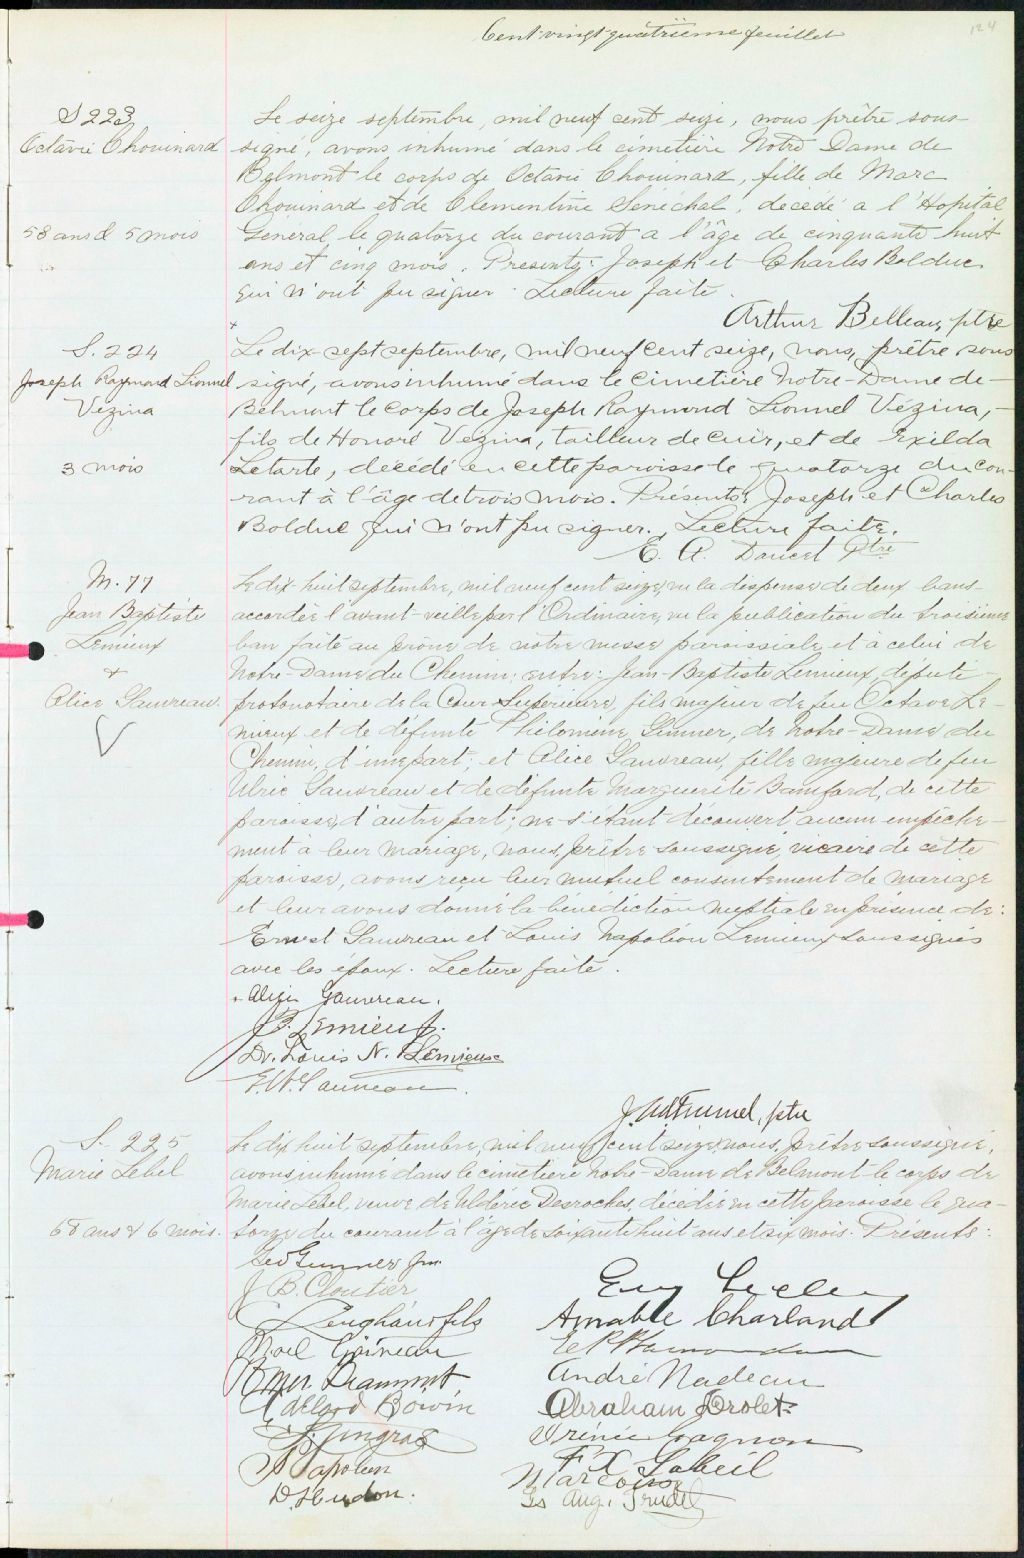 Cent-vingt-quatrième feuillet
124
S 223
Octavie Chouinard
58 ans & 5 mois
Le seize septembre, mil neuf cent seize, nous prêtre sous-
signé, avons inhumé dans le cimetière Notre Dame de
Belmont le corps de Octavie Chouinard, fille de Marc
Chouinard et de Clementine Sénéchal, décédé a l'Hopital
Général, le quatorze du courant a l'âge de cinquante huit
ans et cinq mois. Presents: Joseph et Charles Bolduc
qui n'ont pu signer. Lecture faite.
Arthur Belleau, ptre
S. 224
Joseph Raymond Lionnel
Vézina
3 mois
Le dix-sept septembre, mil neuf cent seize, nous, prêtre sous
signé, avons inhumé dans le cimetière Notre-Dame de-
Belmont le corps de Joseph Raymond Lionnel Vézina,-
fils de Honoré Vezina, tailleur de cuir, et de Exilda
Letarte, décédé en cette paroisse le quatorze du cou-
rant à l'âge de trois mois. Présents: Joseph et Charles
Bolduc qui n'ont pu signer. Lecture faite.
E. A. Doucet Ptre
M. 77
Jean Baptiste
Lemieux
&
Alice Gauvreau.
Le dix-huit septembre, mil neuf cent seize, vu la dispense de deux bans-
accordée l'avant-veille par l'Ordinaire, vu la publication du troisième
ban faite au prône de notre messe paroissiale, et à celui de
Notre-Dame du Chemin; entre: Jean-Baptiste Lemieux, député-
protonotaire de la Cour Supérieure, fils majeur de feu Octave Le-
mieux et de défunte Philomène Gunner, de Notre-Dame du
Chemin, d'une part; et Alice Gauvreau, fille majeure de feu
Ulric Gauvreau et de défunte Marguerite Bamford, de cette
paroisse, d'autre part; ne s'étant découvert aucun empêche-
ment à leur mariage, nous, prêtre soussigné, vicaire de cette
paroisse, avons reçu leur mutuel consentement de mariage
et leur avons donné la bénédiction nuptiale en présence de:
Ernest Gauvreau et Louis Napoléon Lemieux soussignés
avec les époux. Lecture faite.
Alice Gauvreau.
J. B. Lemieux.
Dr. Louis N. Lemieux
E. W. Gauvreau
ptre
S. 225
Marie Lebel
68 ans & 6 mois.
Le dix-huit septembre, mil neuf cent seize, nous, prêtre soussigné,
avons inhumé dans le cimetière Notre-Dame de Belmont le corps de
Marie Lebel, veuve de Uldéric Desroches, décédée en cette paroisse le qua-
torze du courant à l'âge de soixante huit ans et six mois. Présents:
Geo Gunner Jnr.
J B. Cloutier
fils
Noël
Adélard Boivin
J. Gingras
Napoleon
D. Hudon.
Amable Charland
André Nadeau
Abraham Drolet
Irénée Gagnon
F X Gobeil
Marcoux
Gs Aug. Trudel